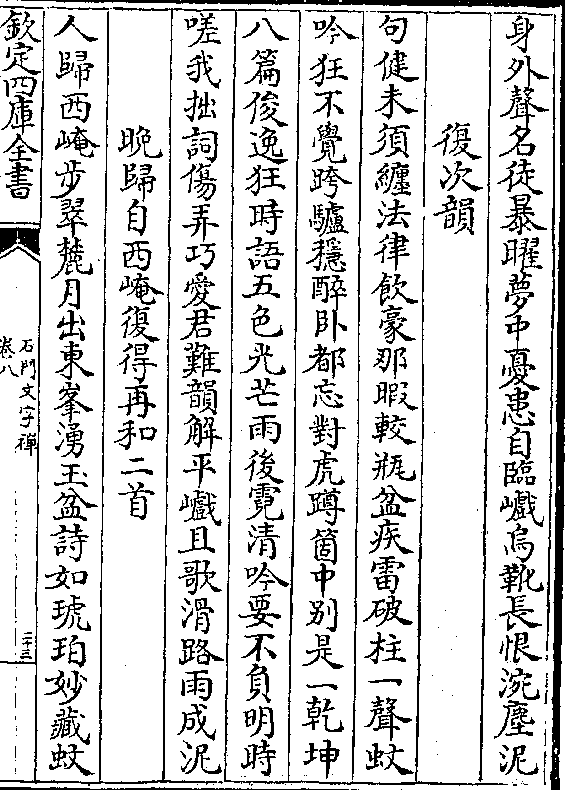 身外聲名徒暴曜夢中憂患自臨巇烏靴長恨涴塵泥
復次韻
句健未須纏法律飲豪那暇較瓶盆疾雷破柱一聲蚊
吟狂不覺跨驢穩醉卧都忘對虎蹲箇中别是一乾坤
八篇俊逸狂時語五色光芒雨後霓清吟要不負明時
嗟我拙詞傷弄巧愛君難韻解平巇且歌滑路雨成泥
晚歸自西崦復得再和二首
人歸西崦步翠麓月出東峯湧玉盆詩如琥珀妙藏蚊
欽定四庫全書
石門文字禪
卷八
二十三